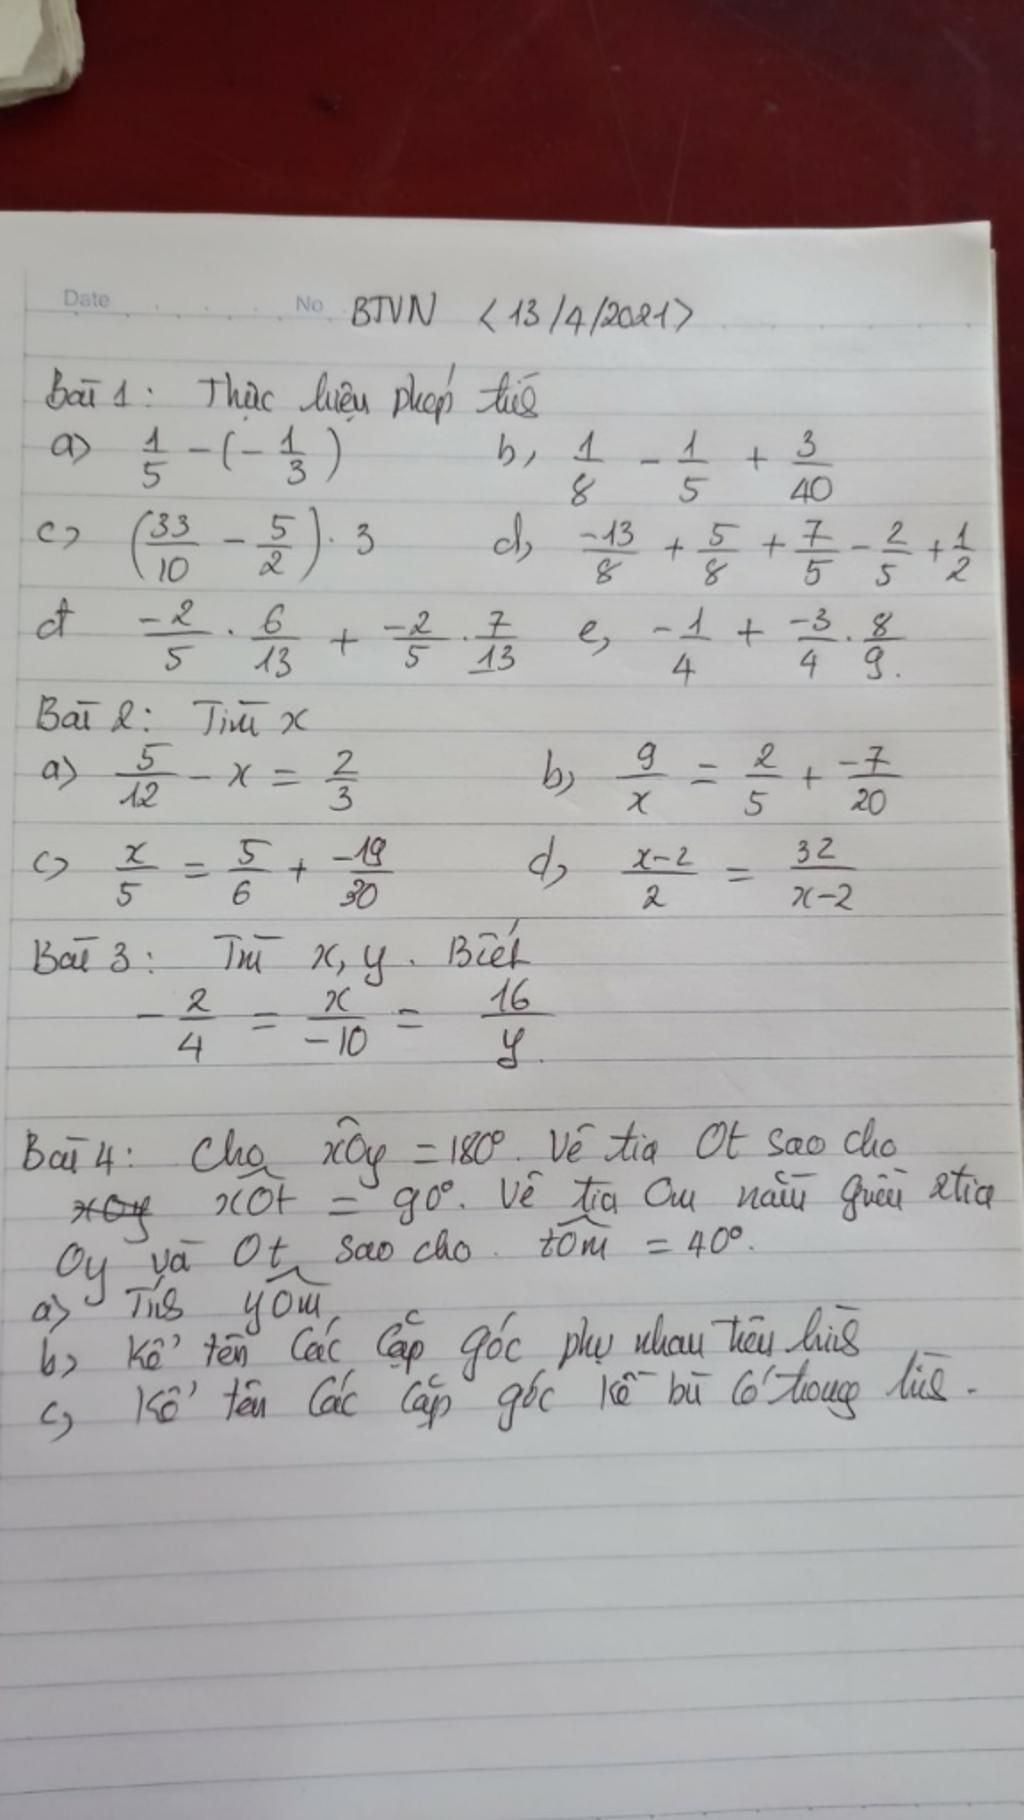 Date No BTVN <13/4/2021>
Bài 1: Thực hiện phép tính
a) 1/5 - (- 1/3) b, 1/8 - 1/5 + 3/40
c) (33/10 - 5/2) . 3 d, -13/8 + 5/8 + 7/5 - 2/5 + 1/2
đ -2/5 . 6/13 + -2/5 . 7/13 e, -1/4 + -3/4 . 8/9.
Bài 2: Tìm x
a) 5/12 - x = 2/3 b, 9/x = 2/5 + -7/20
c) x/5 = 5/6 + -19/30 d, x-2/2 = 32/x-2
Bài 3: Tìm x, y. Biết
- 2/4 = x/-10 = 16/y.
Bài 4: Cho xÔy = 180°. Vẽ tia Ot sao cho
xOy xÔt = 90°. Vẽ tia Om nằm giữa 2 tia
Oy và Ot sao cho. tÔm = 40°.
a) Tính yÔm
b) Kể tên các cặp góc phụ nhau trên hình
c, Kể tên các cặp góc kề bù có trong hình.